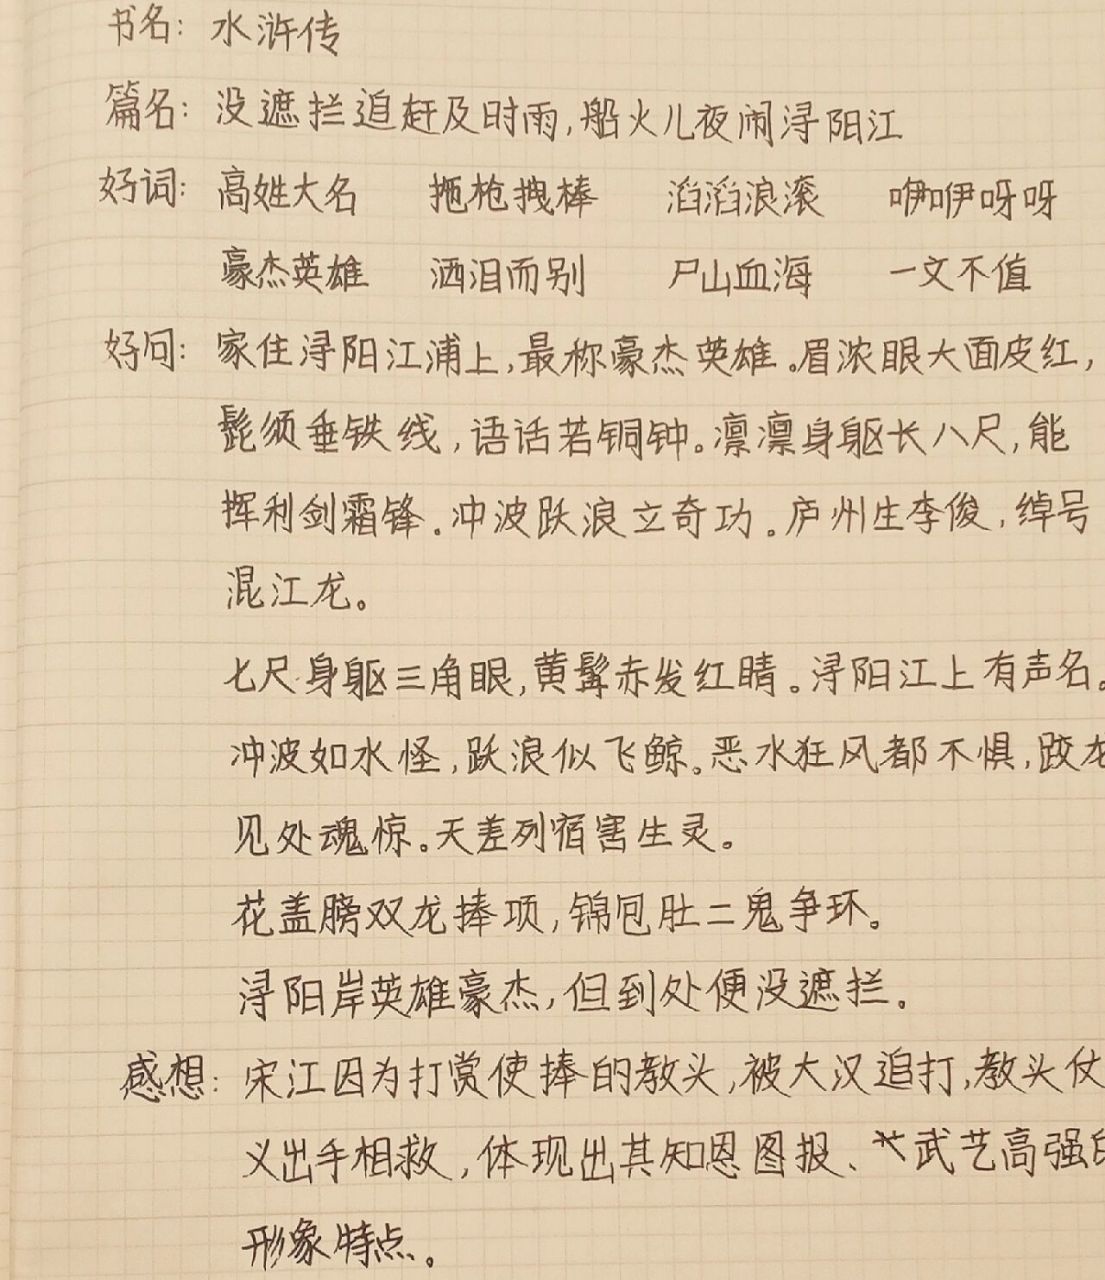 书名：水浒传
篇名：没遮拦追赶及时雨，船火儿夜闹浔阳江
好词：高姓大名 拖枪拽棒 滔滔浪滚 咿咿呀呀
豪杰英雄 洒泪而别 尸山血海 一文不值
好句：家住浔阳江浦上，最称豪杰英雄。眉浓眼大面皮红，
髭须垂铁线，语话若铜钟。凛凛身躯长八尺，能
挥利剑霜锋。冲波跃浪立奇功。庐州生李俊，绰号
混江龙。
七尺身躯三角眼，黄髯赤发红睛。浔阳江上有声名。
冲波如水怪，跃浪似飞鲸。恶水狂风都不惧，蛟龙
见处魂惊。天差列宿害生灵。
花盖膀双龙捧项，锦包肚二鬼争环。
浔阳岸英雄豪杰，但到处便没遮拦。
感想：宋江因为打赏使捧的教头，被大汉追打，教头仗
义出手相救，体现出其知恩图报、武艺高强的
形象特点。